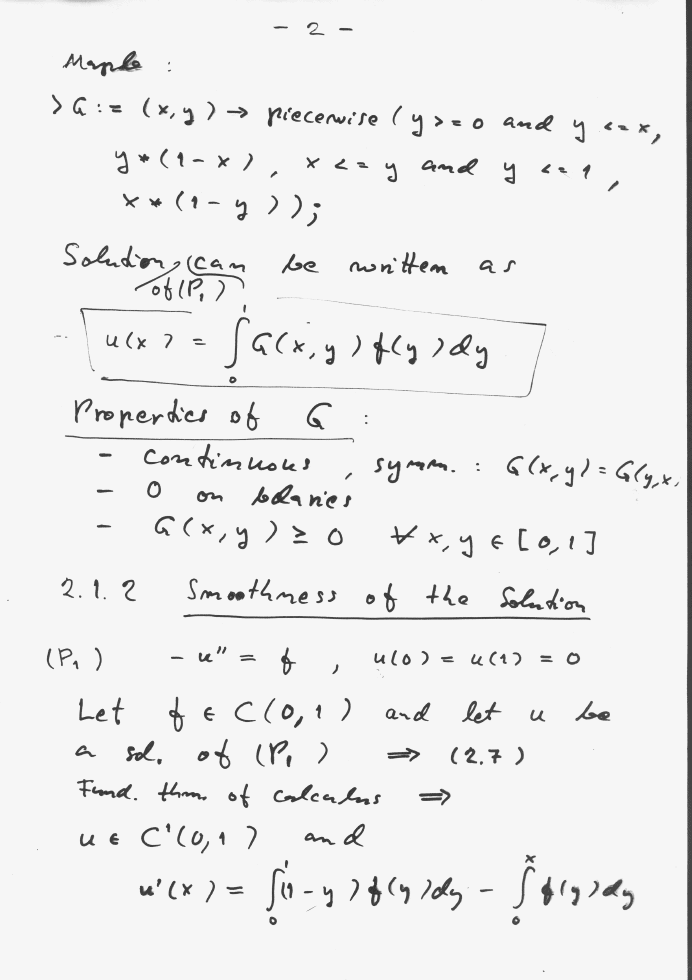 - 2 -
Maple :
> G := (x,y) → piecewise (y >= 0 and y <= x,
y * (1 - x), x <= y and y <= 1,
x * (1 - y));
Solution, can be written as
of (P₁)
u(x) = ∫₀¹ G(x, y) f(y) dy
Properties of G :
- continuous, symm. : G(x, y) = G(y, x,
- 0 on bdaries
- G(x, y) ≥ 0 ∀ x, y ∈ [0, 1]
2.1.2 Smoothness of the Solution
(P₁) - u'' = f , u(0) = u(1) = 0
Let f ∈ C(0, 1) and let u be
a sol. of (P₁) ⇒ (2.7)
Fund. thm. of calculus ⇒
u ∈ C¹(0, 1) and
u'(x) = ∫₀¹ (1 - y) f(y) dy - ∫₀ˣ f(y) dy